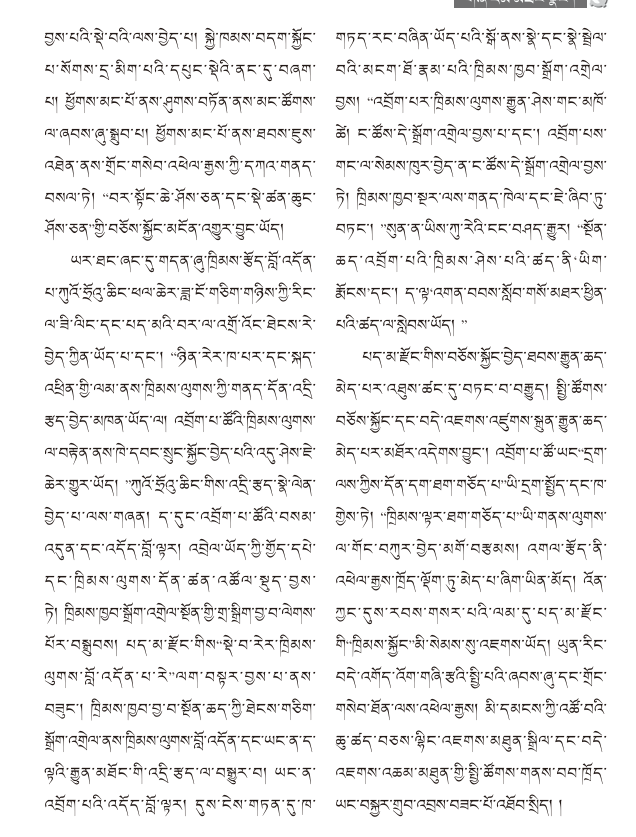 བྱས་པའི་སྡེ་བའི་ལས་བྱེད་པ། སྐྱེ་ཁམས་བདག་སྐྱོང་
པ་སོགས་དྲ་མིག་པའི་དཔུང་སྡེའི་ནང་དུ་བཞག་
པ། ཕྱོགས་མང་པོ་ནས་ཤུགས་བཏོན་ནས་མང་ཚོགས་
ལ་ཞབས་ཞུ་སྒྲུབ་པ། ཕྱོགས་མང་པོ་ནས་ཐབས་ཇུས་
འཐེན་ནས་གྲོང་གསེབ་འཕེལ་རྒྱས་ཀྱི་དཀའ་གནད་
བསལ་ཏེ། “བར་སྟོང་ཆེ་ཤོས་ཅན་དང་སྡེ་ཚན་ཆུང་
ཤོས་ཅན”གྱི་བཅོས་སྐྱོང་མངོན་འགྱུར་བྱུང་ཡོད།
ཡར་ཐང་ཞང་དུ་གདན་ཞུ་ཁྲིམས་རྩོད་བློ་འདོན་
པ་ཀུའོ་ཧྲོའུ་ཆིང་ཕལ་ཆེར་ཟླ་ངོ་གཅིག་གཉིས་ཀྱི་རིང་
ལ་ཟི་ལིང་དང་པད་མའི་བར་ལ་འགྲོ་འོང་ཐེངས་རེ་
བྱེད་ཀྱིན་ཡོད་པ་དང་། “ཉིན་རེར་ཁ་པར་དང་སྐད་
འཕྲིན་གྱི་ལམ་ནས་ཁྲིམས་ལུགས་ཀྱི་གནད་དོན་འདྲི་
རྩད་བྱེད་མཁན་ཡོད་ལ། འབྲོག་པ་ཚོའི་ཁྲིམས་ལུགས་
ལ་བརྟེན་ནས་ཁེ་དབང་སྲུང་སྐྱོང་བྱེད་པའི་འདུ་ཤེས་ཇེ་
ཆེར་གྱུར་ཡོད། ”ཀུའོ་ཧྲོའུ་ཆིང་གིས་འདྲི་རྩད་སྣེ་ལེན་
བྱེད་པ་ལས་གཞན། ད་དུང་འབྲོག་པ་ཚོའི་བསམ་
འདུན་དང་འདོད་བློ་ལྟར། འབྲེལ་ཡོད་ཀྱི་གྱོད་དཔེ་
དང་ཁྲིམས་ལུགས་དོན་ཚན་འཚོལ་སྡུད་བྱས་
ཏེ། ཁྲིམས་ཁྱབ་སྒྲོག་འགྲེལ་སྔོན་གྱི་གྲ་སྒྲིག་བྱ་བ་ལེགས་
པོར་བསྒྲུབས། པད་མ་རྫོང་གིས“སྡེ་བ་རེར་ཁྲིམས་
ལུགས་བློ་འདོན་པ་རེ”ལག་བསྟར་བྱས་པ་ནས་
བཟུང་། ཁྲིམས་ཁྱབ་བྱ་བ་སྔོན་ཆད་ཀྱི་ཐེངས་གཅིག་
སྒྲོག་འགྲེལ་ནས་ཁྲིམས་ལུགས་བློ་འདོན་དང་ཡང་ན་ད་
ལྟའི་རྒྱུན་མཐོང་གི་འདྲི་རྩད་ལ་བསྒྱུར་བ། ཡང་ན་
འབྲོག་པའི་འདོད་བློ་ལྟར། དུས་ངེས་གཏན་དུ་ཁ་
གཏད་རང་བཞིན་ཡོད་པའི་སྒོ་ནས་སྣེ་དང་སྣེ་སྦྲེལ་
བའི་མངག་ཐོ་རྣམ་པའི་ཁྲིམས་ཁྱབ་སྒྲོག་འགྲེལ་
བྱས། “འབྲོག་པར་ཁྲིམས་ལུགས་རྒྱུན་ཤེས་གང་མཁོ་
ཚེ། ང་ཚོས་དེ་སྒྲོག་འགྲེལ་བྱས་པ་དང་། འབྲོག་པས་
གང་ལ་སེམས་ཁུར་བྱེད་ན་ང་ཚོས་དེ་སྒྲོག་འགྲེལ་བྱས་
ཏེ། ཁྲིམས་ཁྱབ་སྔར་ལས་གནད་ཁེལ་དང་ཇེ་ཞིབ་ཏུ་
བཏང་། ”སུན་ན་ཡིས་ཀུ་རེའི་ངང་བཤད་རྒྱུར། “སྔོན་
ཆད་འབྲོག་པའི་ཁྲིམས་ཤེས་པའི་ཚད་ནི་ཡིག་
རྨོངས་དང་། ད་ལྟ་འགན་བབས་སློབ་གསོ་མཐར་ཕྱིན་
པའི་ཚད་ལ་སླེབས་ཡོད། ”
པད་མ་རྫོང་གིས་བཅོས་སྐྱོང་བྱེད་ཐབས་རྒྱུན་ཆད་
མེད་པར་འཐུས་ཚང་དུ་བཏང་བ་བརྒྱུད། སྤྱི་ཚོགས་
བཅོས་སྐྱོང་དང་བདེ་འཇགས་འཛུགས་སྐྲུན་རྒྱུན་ཆད་
མེད་པར་མཐོར་འདེགས་བྱུང་། འབྲོག་པ་ཚོ་ཡང“དྲག་
ལས་ཀྱིས་དོན་དག་ཐག་གཅོད་པ”ཡི་དྲག་སྤྱོད་དང་ཁ་
གྱེས་ཏེ། “ཁྲིམས་ལྟར་ཐག་གཅོད་པ”ཡི་གནས་ལུགས་
ལ་གོང་བཀུར་བྱེད་མགོ་བརྩམས། འགལ་རྩོད་ནི་
འཕེལ་རྒྱས་ཁྲོད་ལྡོག་ཏུ་མེད་པ་ཞིག་ཡིན་མོད། འོན་
ཀྱང་དུས་རབས་གསར་པའི་ལམ་དུ་པད་མ་རྫོང་
གི“ཁྲིམས་སྐྱོང”མི་སེམས་སུ་འཇགས་ཡོད། ཡུན་རིང་
བདེ་འགོད་འོག་གཞི་རྩའི་སྤྱི་པའི་ཞབས་ཞུ་དང་གྲོང་
གསེབ་ཐོན་ལས་འཕེལ་རྒྱས། མི་དམངས་ཀྱི་འཚོ་བའི་
ཆུ་ཚད་བཅས་ལྷིང་འཇགས་མཐུན་སྒྲིལ་དང་བདེ་
འཇགས་འཆམ་མཐུན་གྱི་སྤྱི་ཚོགས་གནས་བབ་ཁྲོད་
ཡང་བསྐྱར་གྲུབ་འབྲས་བཟང་པོ་འཐོབ་སྲིད། །